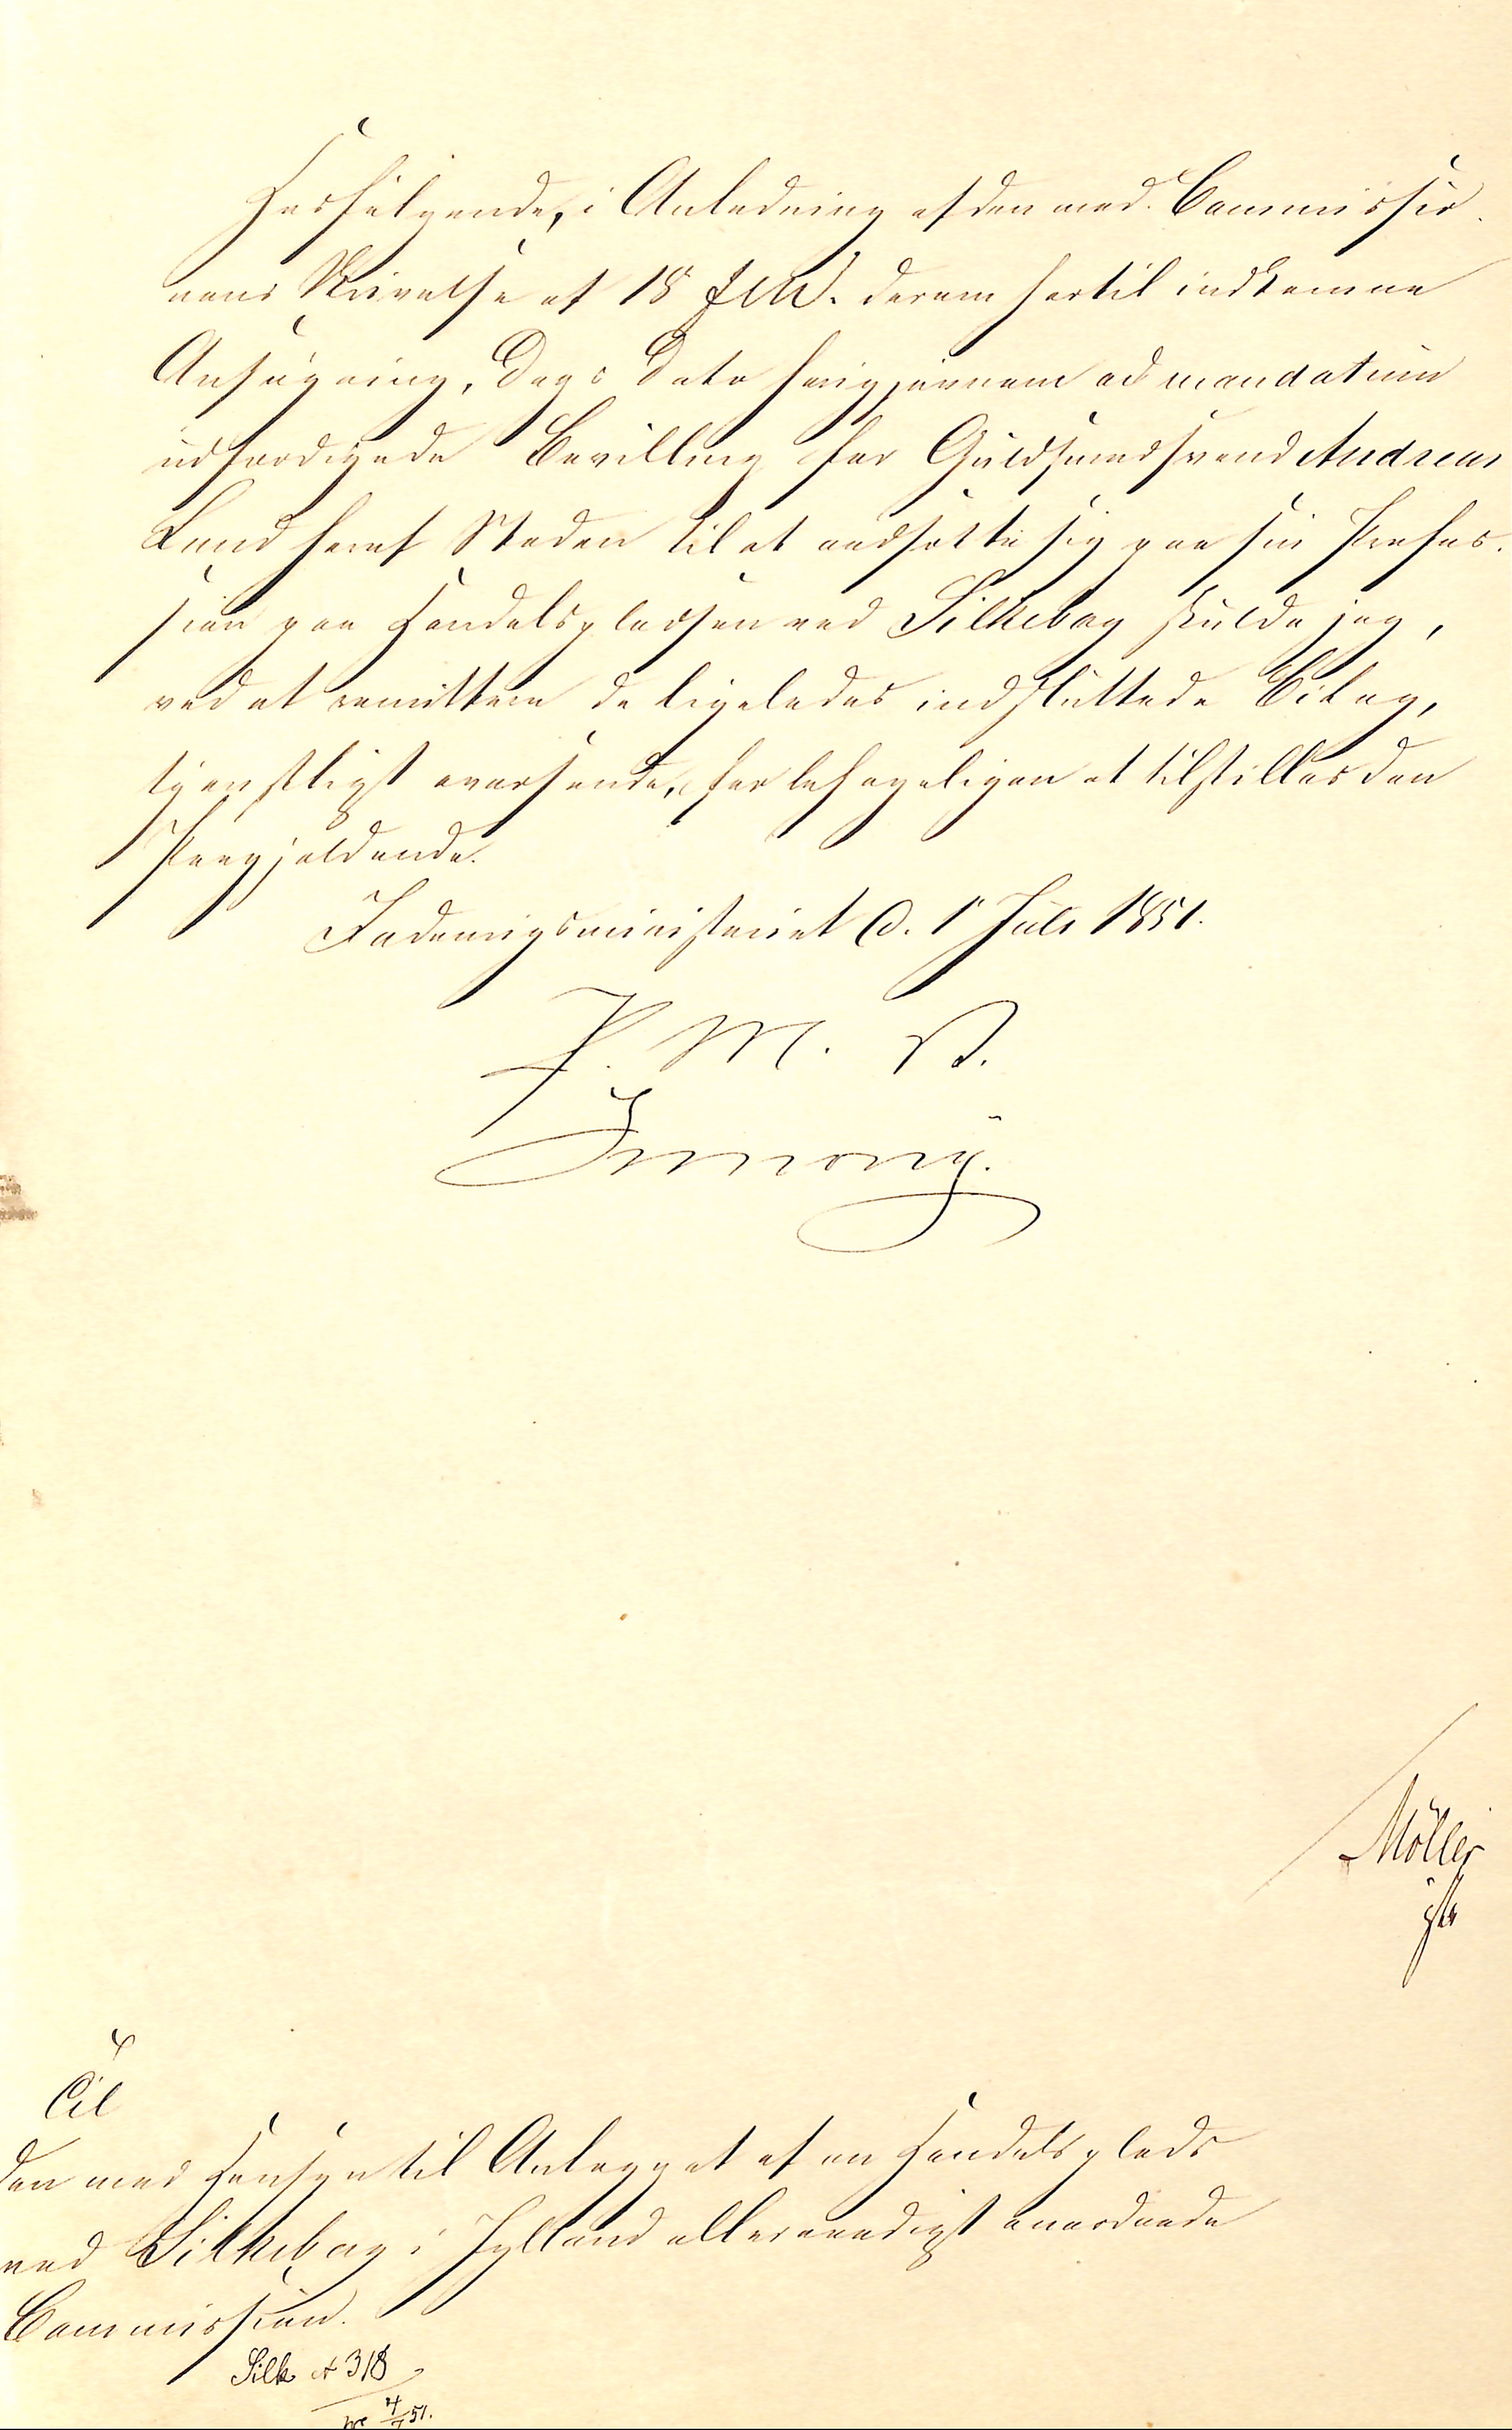 Hosfølgende, i Anledning af den med Commissio-
nens Skrivelse af 18 f.M. derom hertil indkomne
Ansøgning, Dags Dato herigjennem ad mandatum
udfærdigede Bevilling for Guldsmedsvend Andreas
Lund heraf Staden til at nedsætte sig paa sin Profes-
sion paa Handelspladsen ved Silkeborg skulde jeg,
ved at remittere de ligeledes indsluttede Bilag,
tjenstligst oversende, for behageligen at tilstilles den
Paagjældende.
Indenrigsministeriet d. 1 Juli 1851.
F. M. V.
Simony.
Möller
Til
den med Hensyn til Anlægget af en Handelsplads
ved Silkeborg i Jylland allernaadigst anordnede
Commission.
Silk № 318
4/7 51.